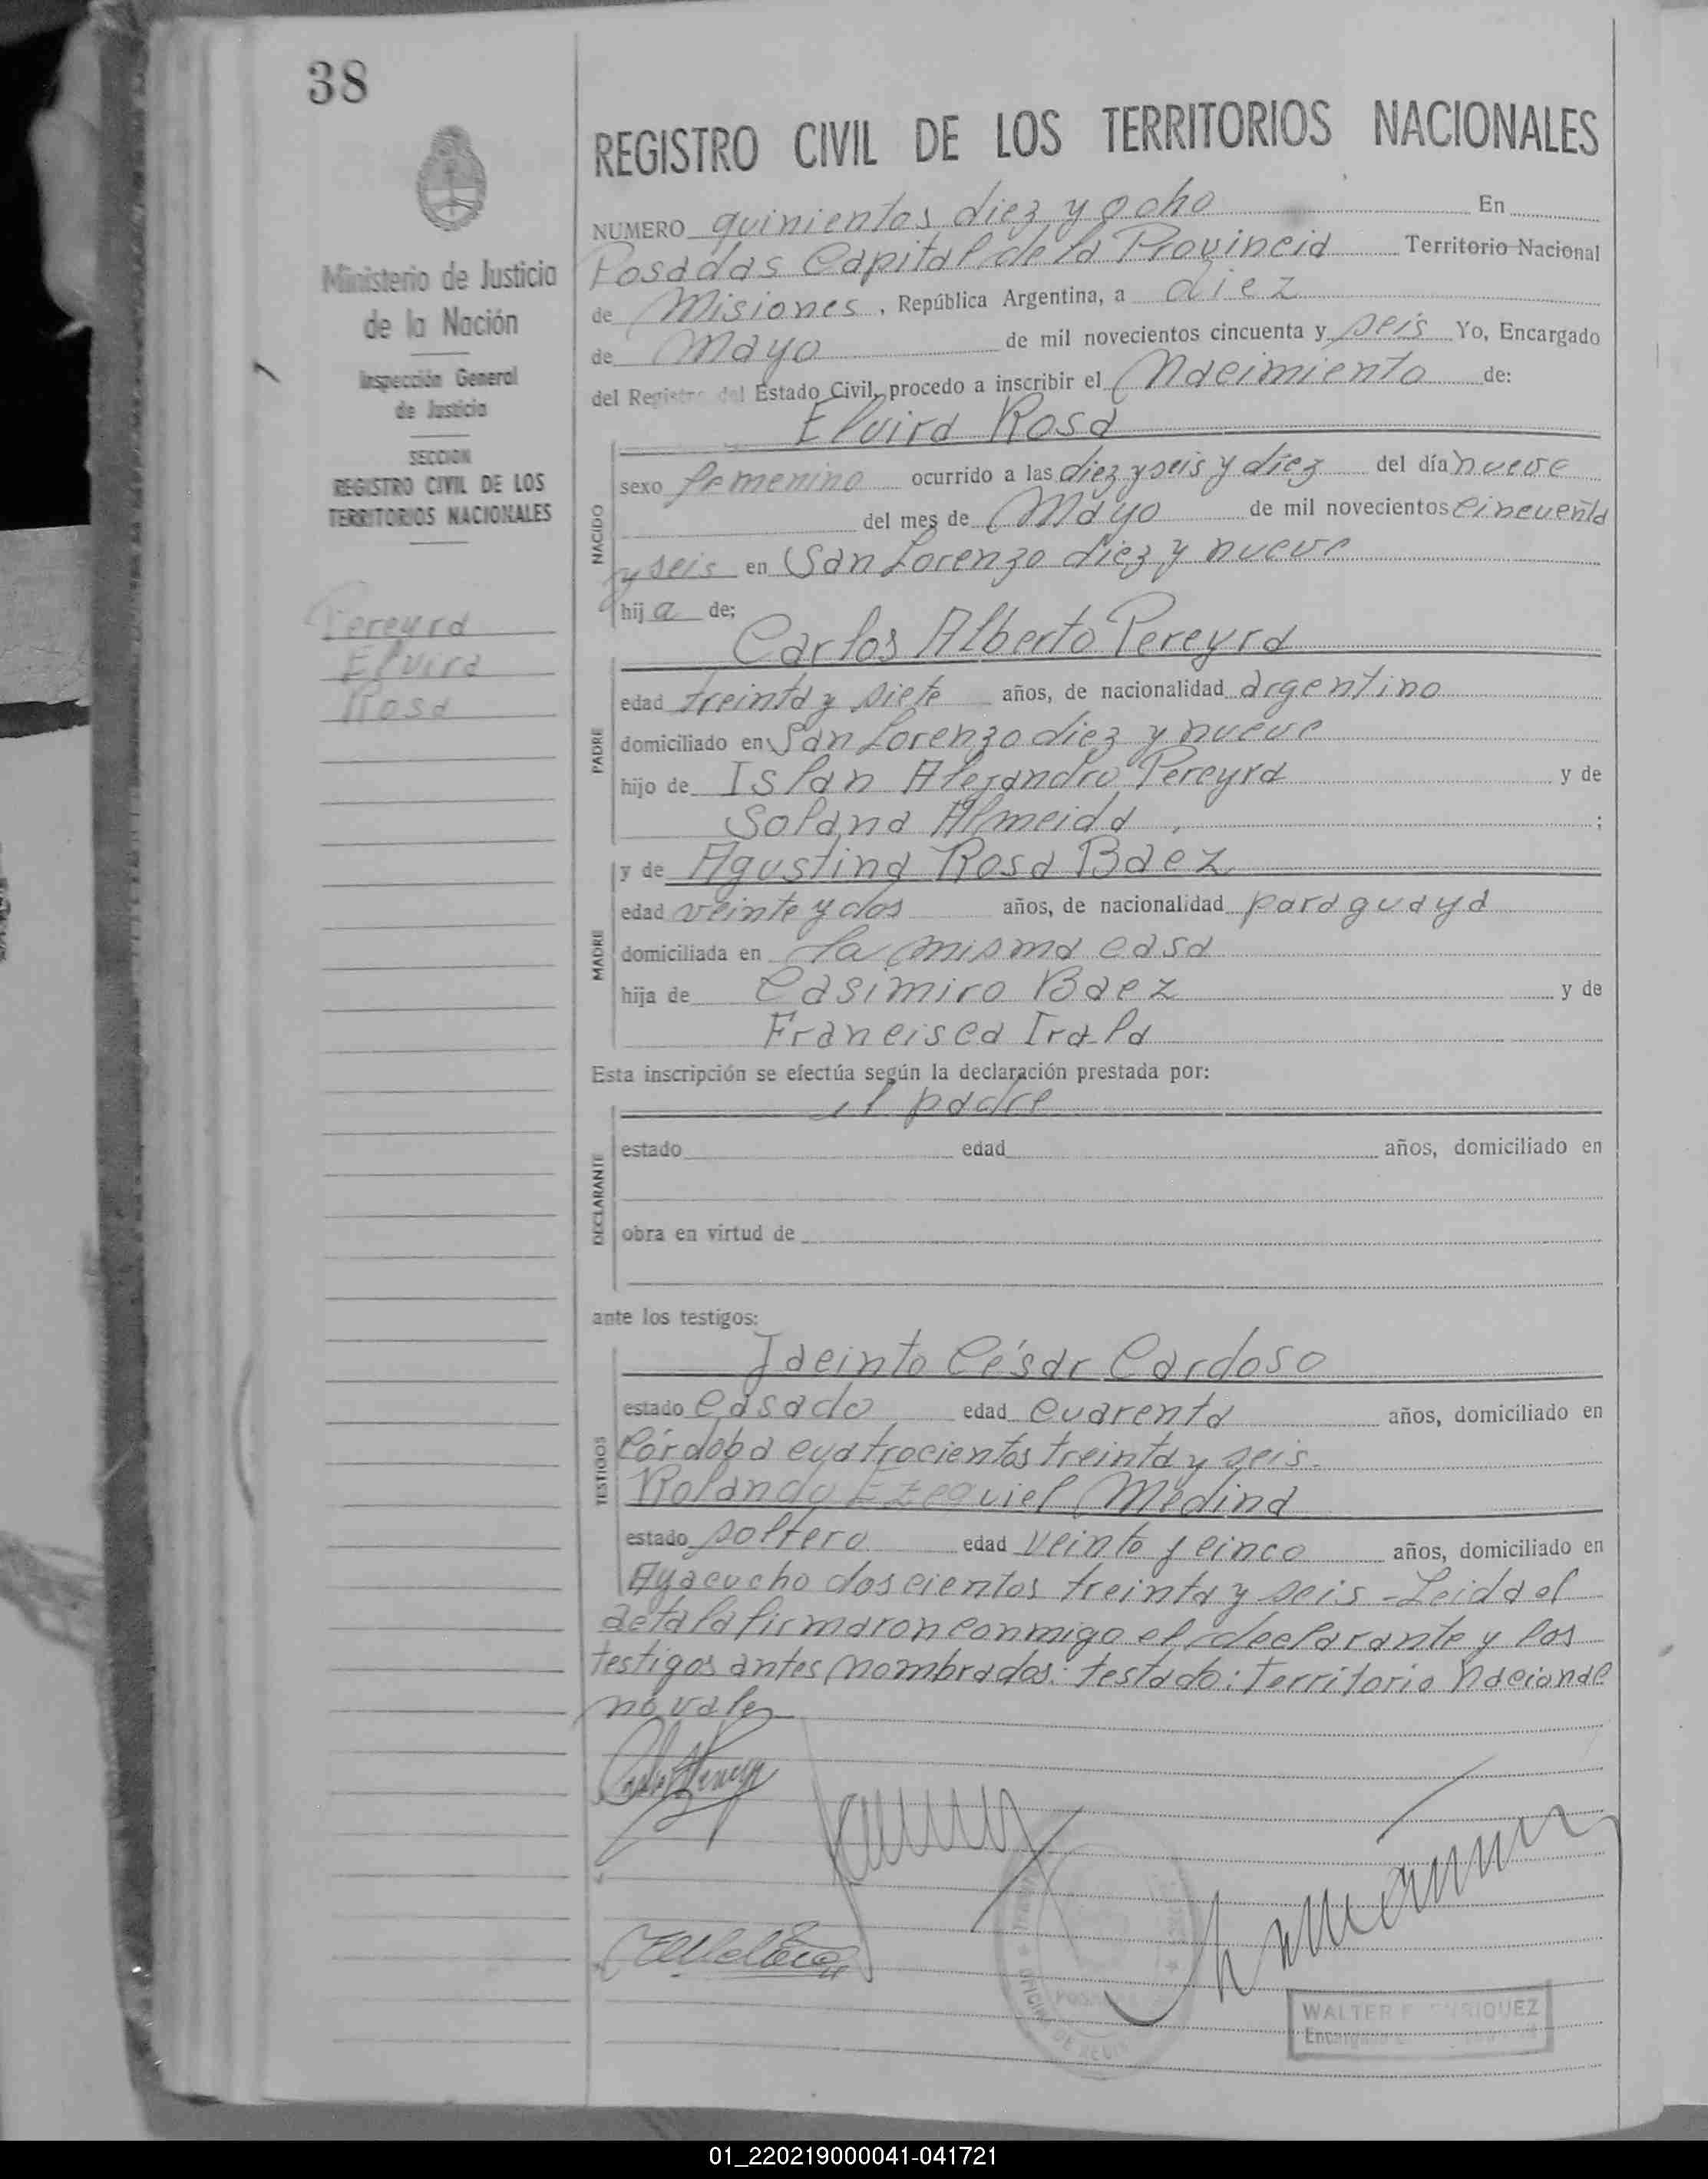 38
REGISTRO CIVIL DE LOS TERRITORIOS NACIONALES
Ministerio de Justicia
de la Nación
Inspección General
de Justicia
SECCION
REGISTRO CIVIL DE LOS
TERRITORIOS NACIONALES
Pereyra
Elvira
Rosa
NUMERO quinientos diez y ocho En
Posadas Capital de la Provincia Territorio Nacional
de Misiones, República Argentina, a diez
de Mayo de mil novecientos cincuenta y seis Yo, Encargado
del Registro del Estado Civil, procedo a inscribir el Nacimiento de:
Elvira Rosa
NACIDO
sexo femenino ocurrido a las diez y seis y diez del día nueve
del mes de Mayo de mil novecientos cincuenta
y seis en San Lorenzo diez y nueve
hij a de:
Carlos Alberto Pereyra
PADRE
edad treinta y siete años, de nacionalidad argentino
domiciliado en San Lorenzo diez y nueve
hijo de Islan Alejandro Pereyra y de
Solana Almeida ;
y de Agustina Rosa Baez
MADRE
edad veinte y dos años, de nacionalidad paraguaya
domiciliada en la misma casa
hija de Casimiro Baez y de
Francisca Irala
Esta inscripción se efectúa según la declaración prestada por:
el padre
DECLARANTE
estado edad años, domiciliado en
obra en virtud de
ante los testigos:
Jacinto César Cardoso
TESTIGOS
estado casado edad cuarenta años, domiciliado en
Córdoba cuatrocientos treinta y seis.
Rolando Ezequiel Medina
estado soltero edad veinte y cinco años, domiciliado en
Ayacucho doscientos treinta y seis - Leida el
acta la firmaron conmigo el declarante y los
testigos antes nombrados: testado: Territorio Nacional
no vale
WALTER ENRIQUEZ
Encargado
01_220219000041-041721